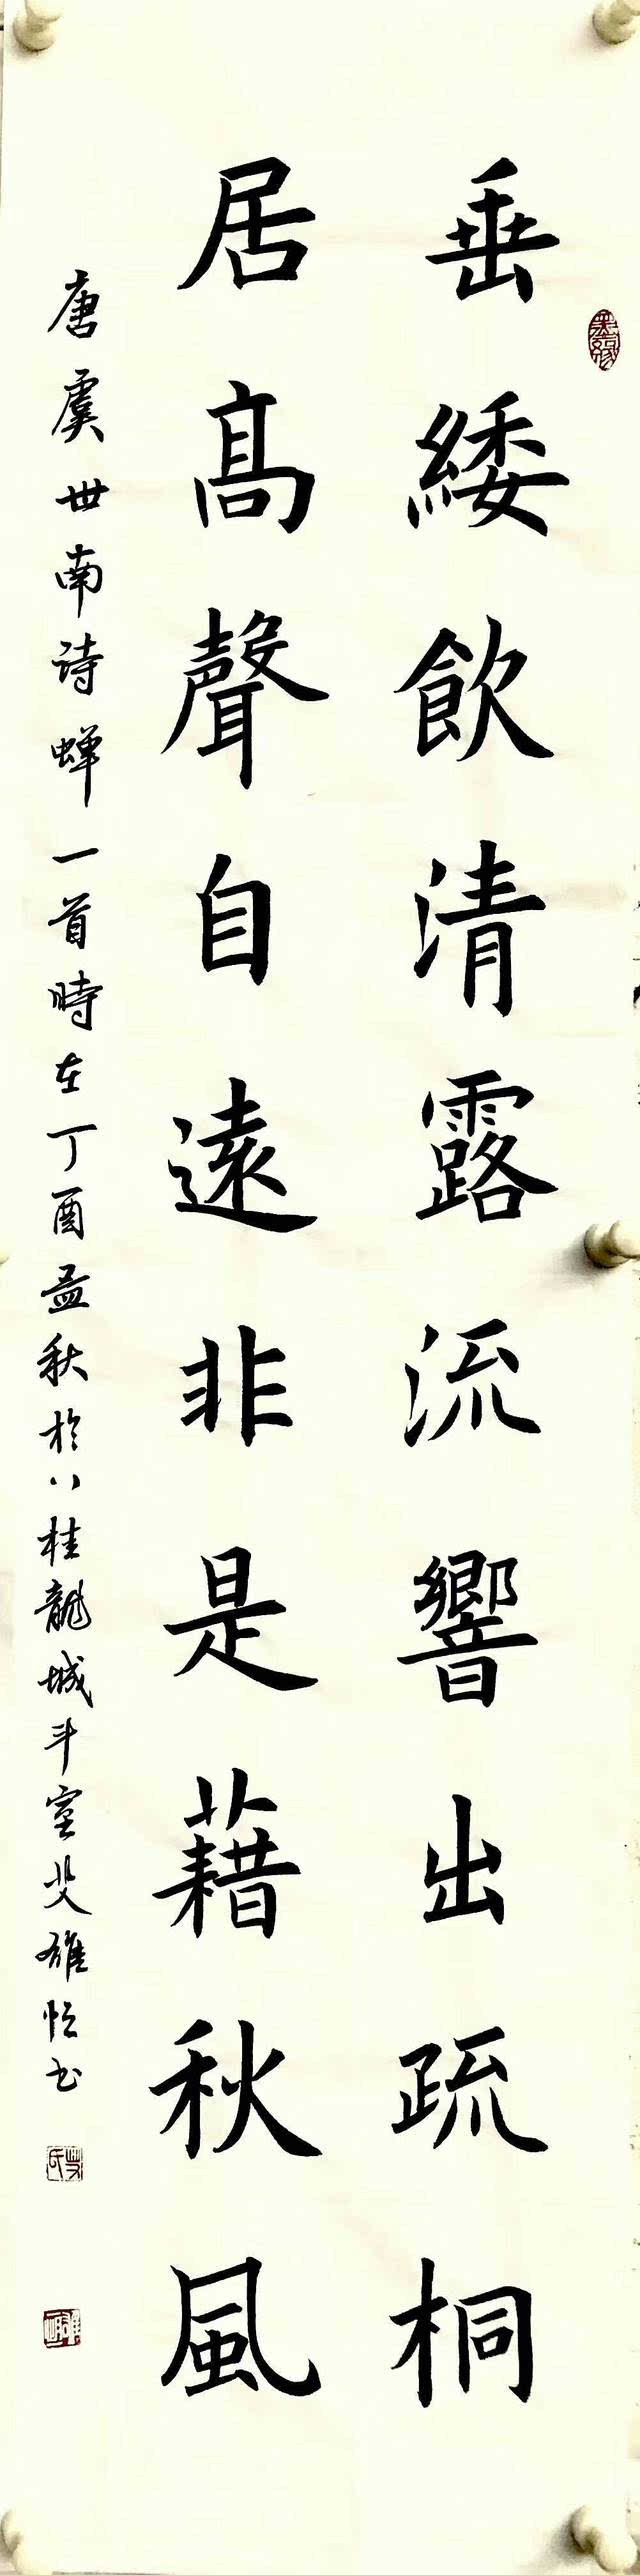 垂緌飲清露流響出疏桐
居高聲自遠非是藉秋風
唐虞世南诗蝉一首時在丁酉孟秋於八桂龍城斗室